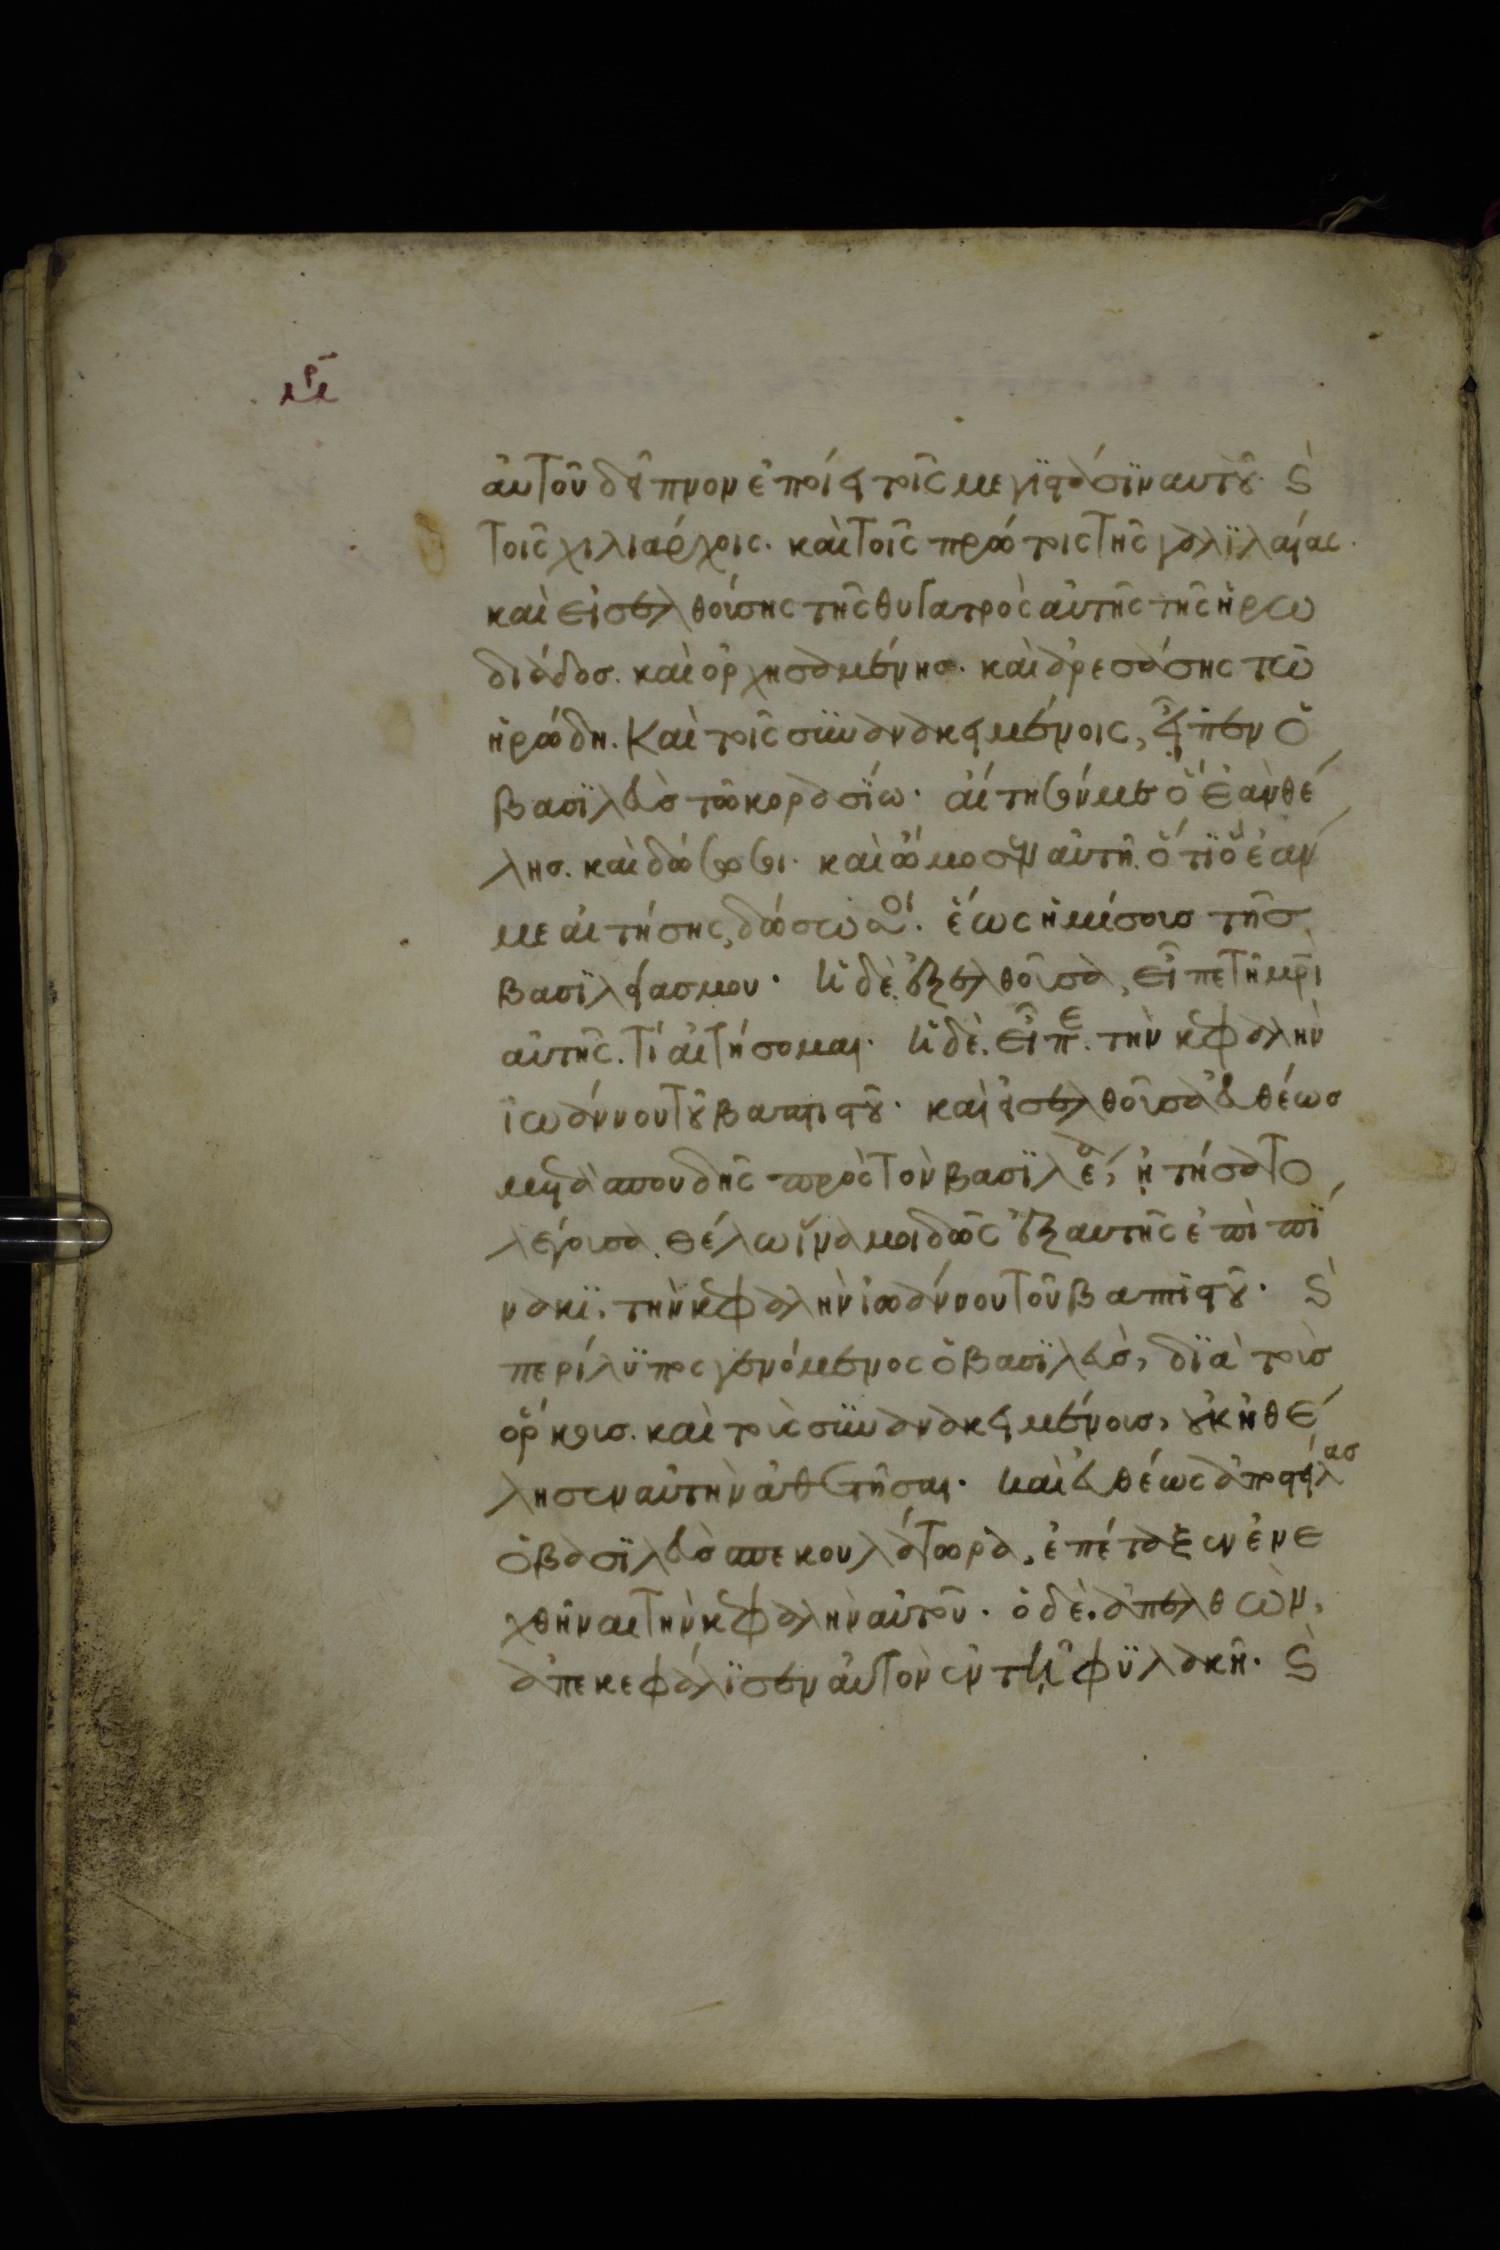 αὐτοῦ δεῖπνον ἐποίει τοῖς μεγιστάσϊν αυτοῦ· καὶ
τοῖς χιλιάρχοις· καὶ τοῖς πρώτοις τῆς γαλϊλαίας·
καὶ εἰσελθούσης τῆς θυγατρὸς αὐτῆς τῆς ἡρω
διάδος. καὶ ὀρχησαμένης. καὶ ἀρεσάσης τῶ
ἡρώδη. καὶ τοῖς συνανακειμένοις, εἶπεν ὁ
βασϊλεὺς τῶ κορασΐω· αἴτησόν με ὃ ἐὰν θέ
λης. καὶ δώσω σοι. καὶ ὤμοσεν αὐτῆ. ὅ τϊ ὃ ἐάν
με αἰτήσης, δώσω σοί. ἕως ἡμίσους τῆς
βασϊλείας μου· ἡ δὲ ἐξελθοῦσα, εἶπε τῆ μρὶ
αὐτῆς. τί αἰτήσομαι· ἡ δὲ. εἶπε. τὴν κεφαλὴν
ἰωάννου τοῦ βαπτιστοῦ· καὶ εἰσελθοῦσα εὐθέως
μετὰ σπουδῆς πρὸς τὸν βασϊλέα, ἠτήσατο
λέγουσα. θέλω ἵνα μοι δῶς ἐξαυτῆς ἐπὶ πί
νακϊ. τὴν κεφαλὴν ἰωάννου τοῦ βαπτιστοῦ· καὶ
περίλϋπος γενόμενος ὁ βασϊλεὺς, δϊὰ τοὺς
ὅρκους. καὶ τοὺς συνανακειμένους, οὐκ ἠθέ
λησεν αὐτὴν ἀθετῆσαι· καὶ εὐθέως ἀποστείλας
ὁ βασϊλεὺς σπεκουλάτωρα, ἐπέταξεν ἐνε
χθῆναι τὴν κεφαλὴν αὐτοῦ· ὁ δὲ. ἀπελθὼν,
ἀπεκεφάλϊσεν αὐτὸν ἐν τῆ φϋλακῆ· καὶ